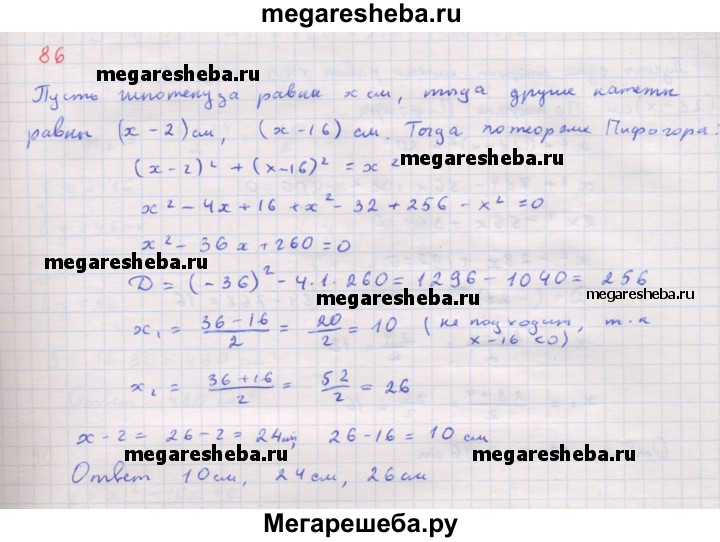 megaresheba.ru
86
megaresheba.ru
Пусть гипотенуза равна x см, тогда другие катеты
megaresheba.ru
равны (x - 2) см, (x - 16) см. Тогда по теореме Пифагора:
(x - 2)² + (x - 16)² = x²
megaresheba.ru
x² - 4x + 16 + x² - 32 + 256 - x² = 0
x² - 36x + 260 = 0
megaresheba.ru
D = (-36)² - 4·1·260 = 1296 - 1040 = 256
megaresheba.ru
megaresheba.ru
x₁ = (36 - 16)/2 = 20/2 = 10 (не подходит, т.к
x - 16 < 0)
x₂ = (36 + 16)/2 = 52/2 = 26
x - 2 = 26 - 2 = 24 см, 26 - 16 = 10 см
megaresheba.ru
megaresheba.ru
Ответ 10 см, 24 см, 26 см
Мегарешеба.ру